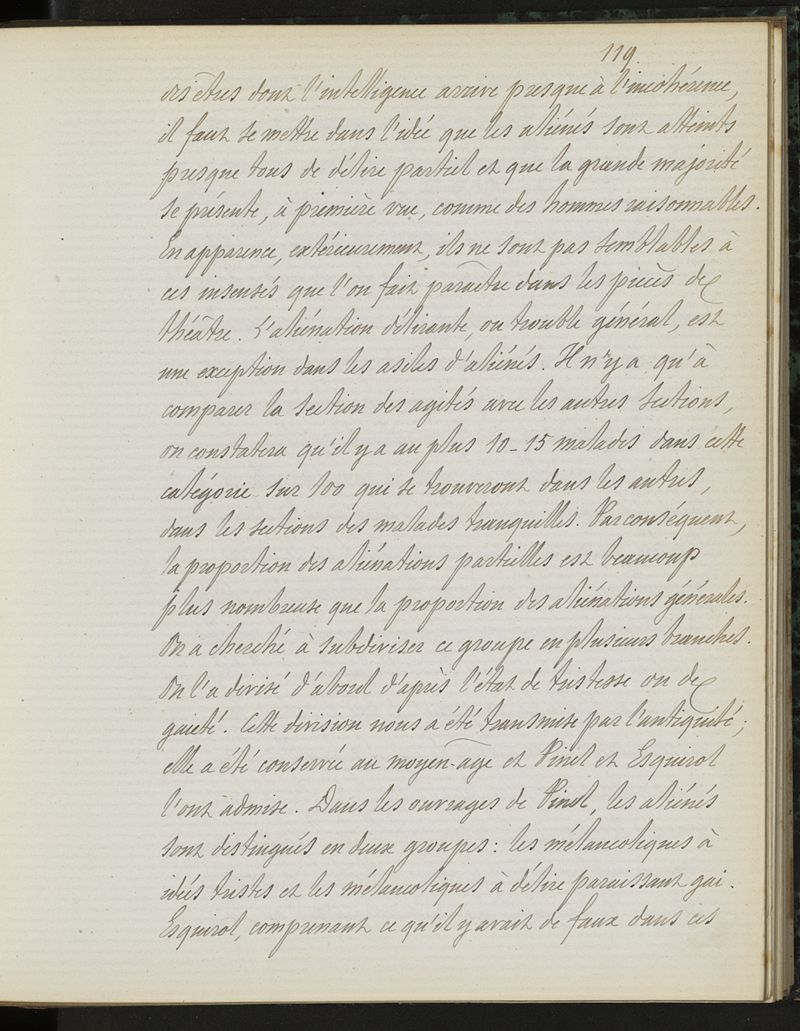 119.
des êtres dont l'intelligence arrive presque à l'incohérence,
il faut se mettre dans l'idée que les aliénés sont atteints
presque tous de délire partiel et que la grande majorité
se présente, à première vue, comme des hommes raisonnables.
En apparence, extérieurement, ils ne sont pas semblables à
ces insensés que l'on fait paraître dans les pièces de
théâtre. L'aliénation délirante, ou trouble général, est
une exception dans les asiles d'aliénés. Il n'y a qu'à
comparer la section des agités avec les autres sections,
on constatera qu'il y a au plus 10-15 malades dans cette
catégorie sur 100 qui se trouveront dans les autres,
dans les sections des malades tranquilles. Par conséquent,
la proportion des aliénations partielles est beaucoup
plus nombreuse que la proportion des aliénations générales.
On a cherché à subdiviser ce groupe en plusieurs branches.
On l'a divisé d'abord d'après l'état de tristesse ou de
gaieté. Cette division nous a été transmise par l'antiquité;
elle a été conservée au moyen-âge et Pinel et Esquirol
l'ont admise. Dans les ouvrages de Pinel, les aliénés
sont distingués en deux groupes: les mélancoliques à
idées tristes et les mélancoliques à délire paraissant gai.
Esquirol, comprenant ce qu'il y avait de faux dans ces